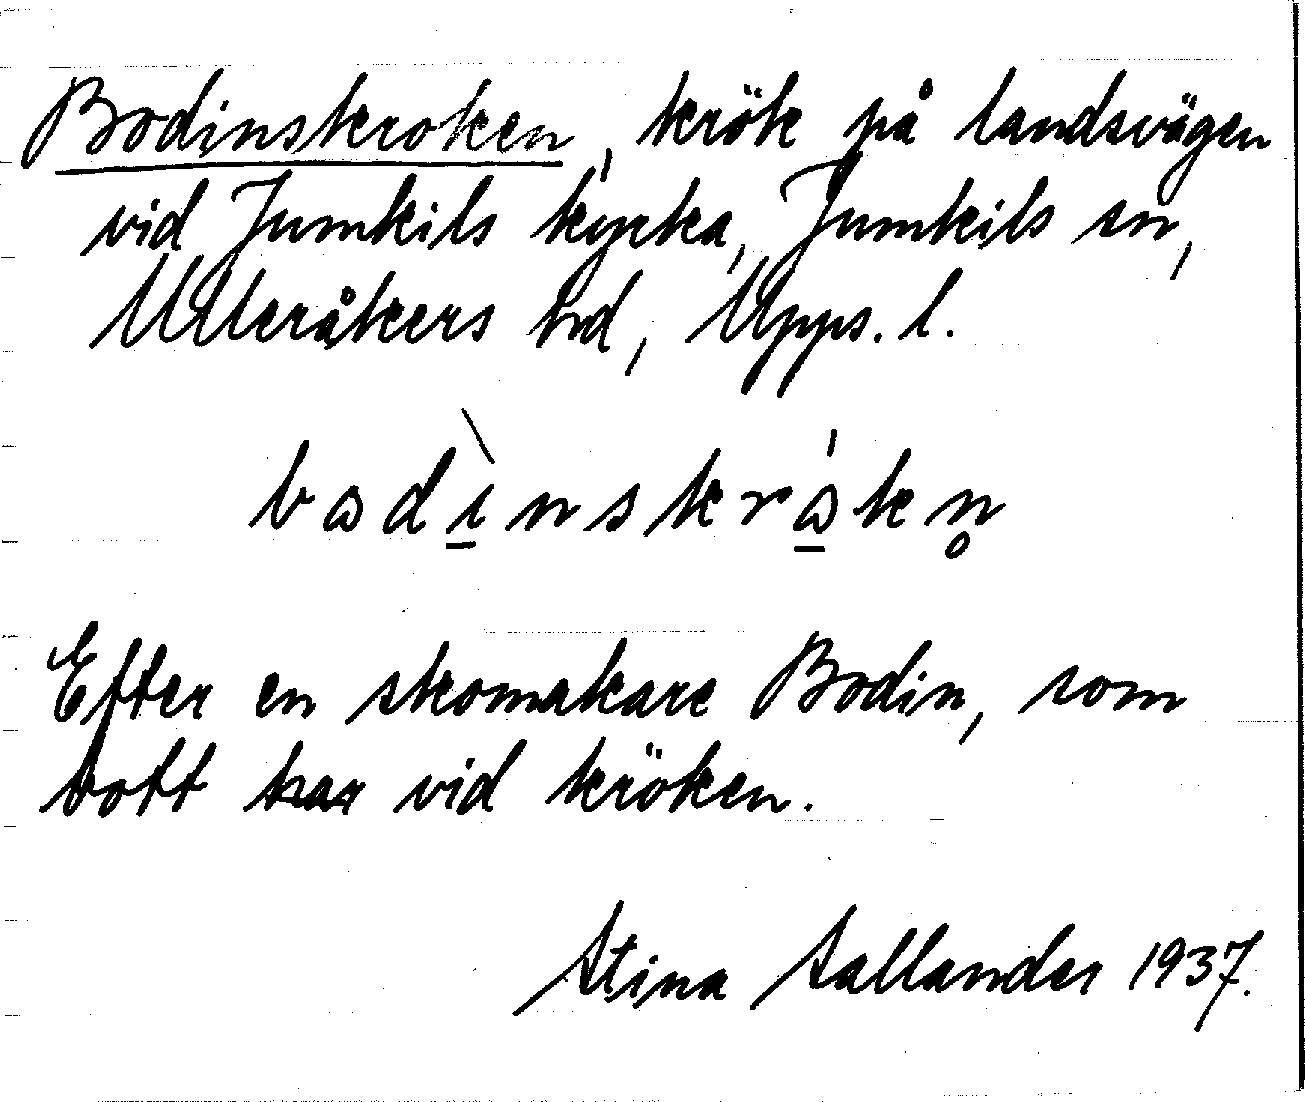 Bodinskroken, krök på landsvägen
vid Jumkils kyrka, Jumkils sn,
Ulleråkers hd, Upps. l.
bɷdì̱nskrɷ̱́kn̥
Efter en skomakare Bodin, som
bott har vid kröken.
Stina Sallander 1937.